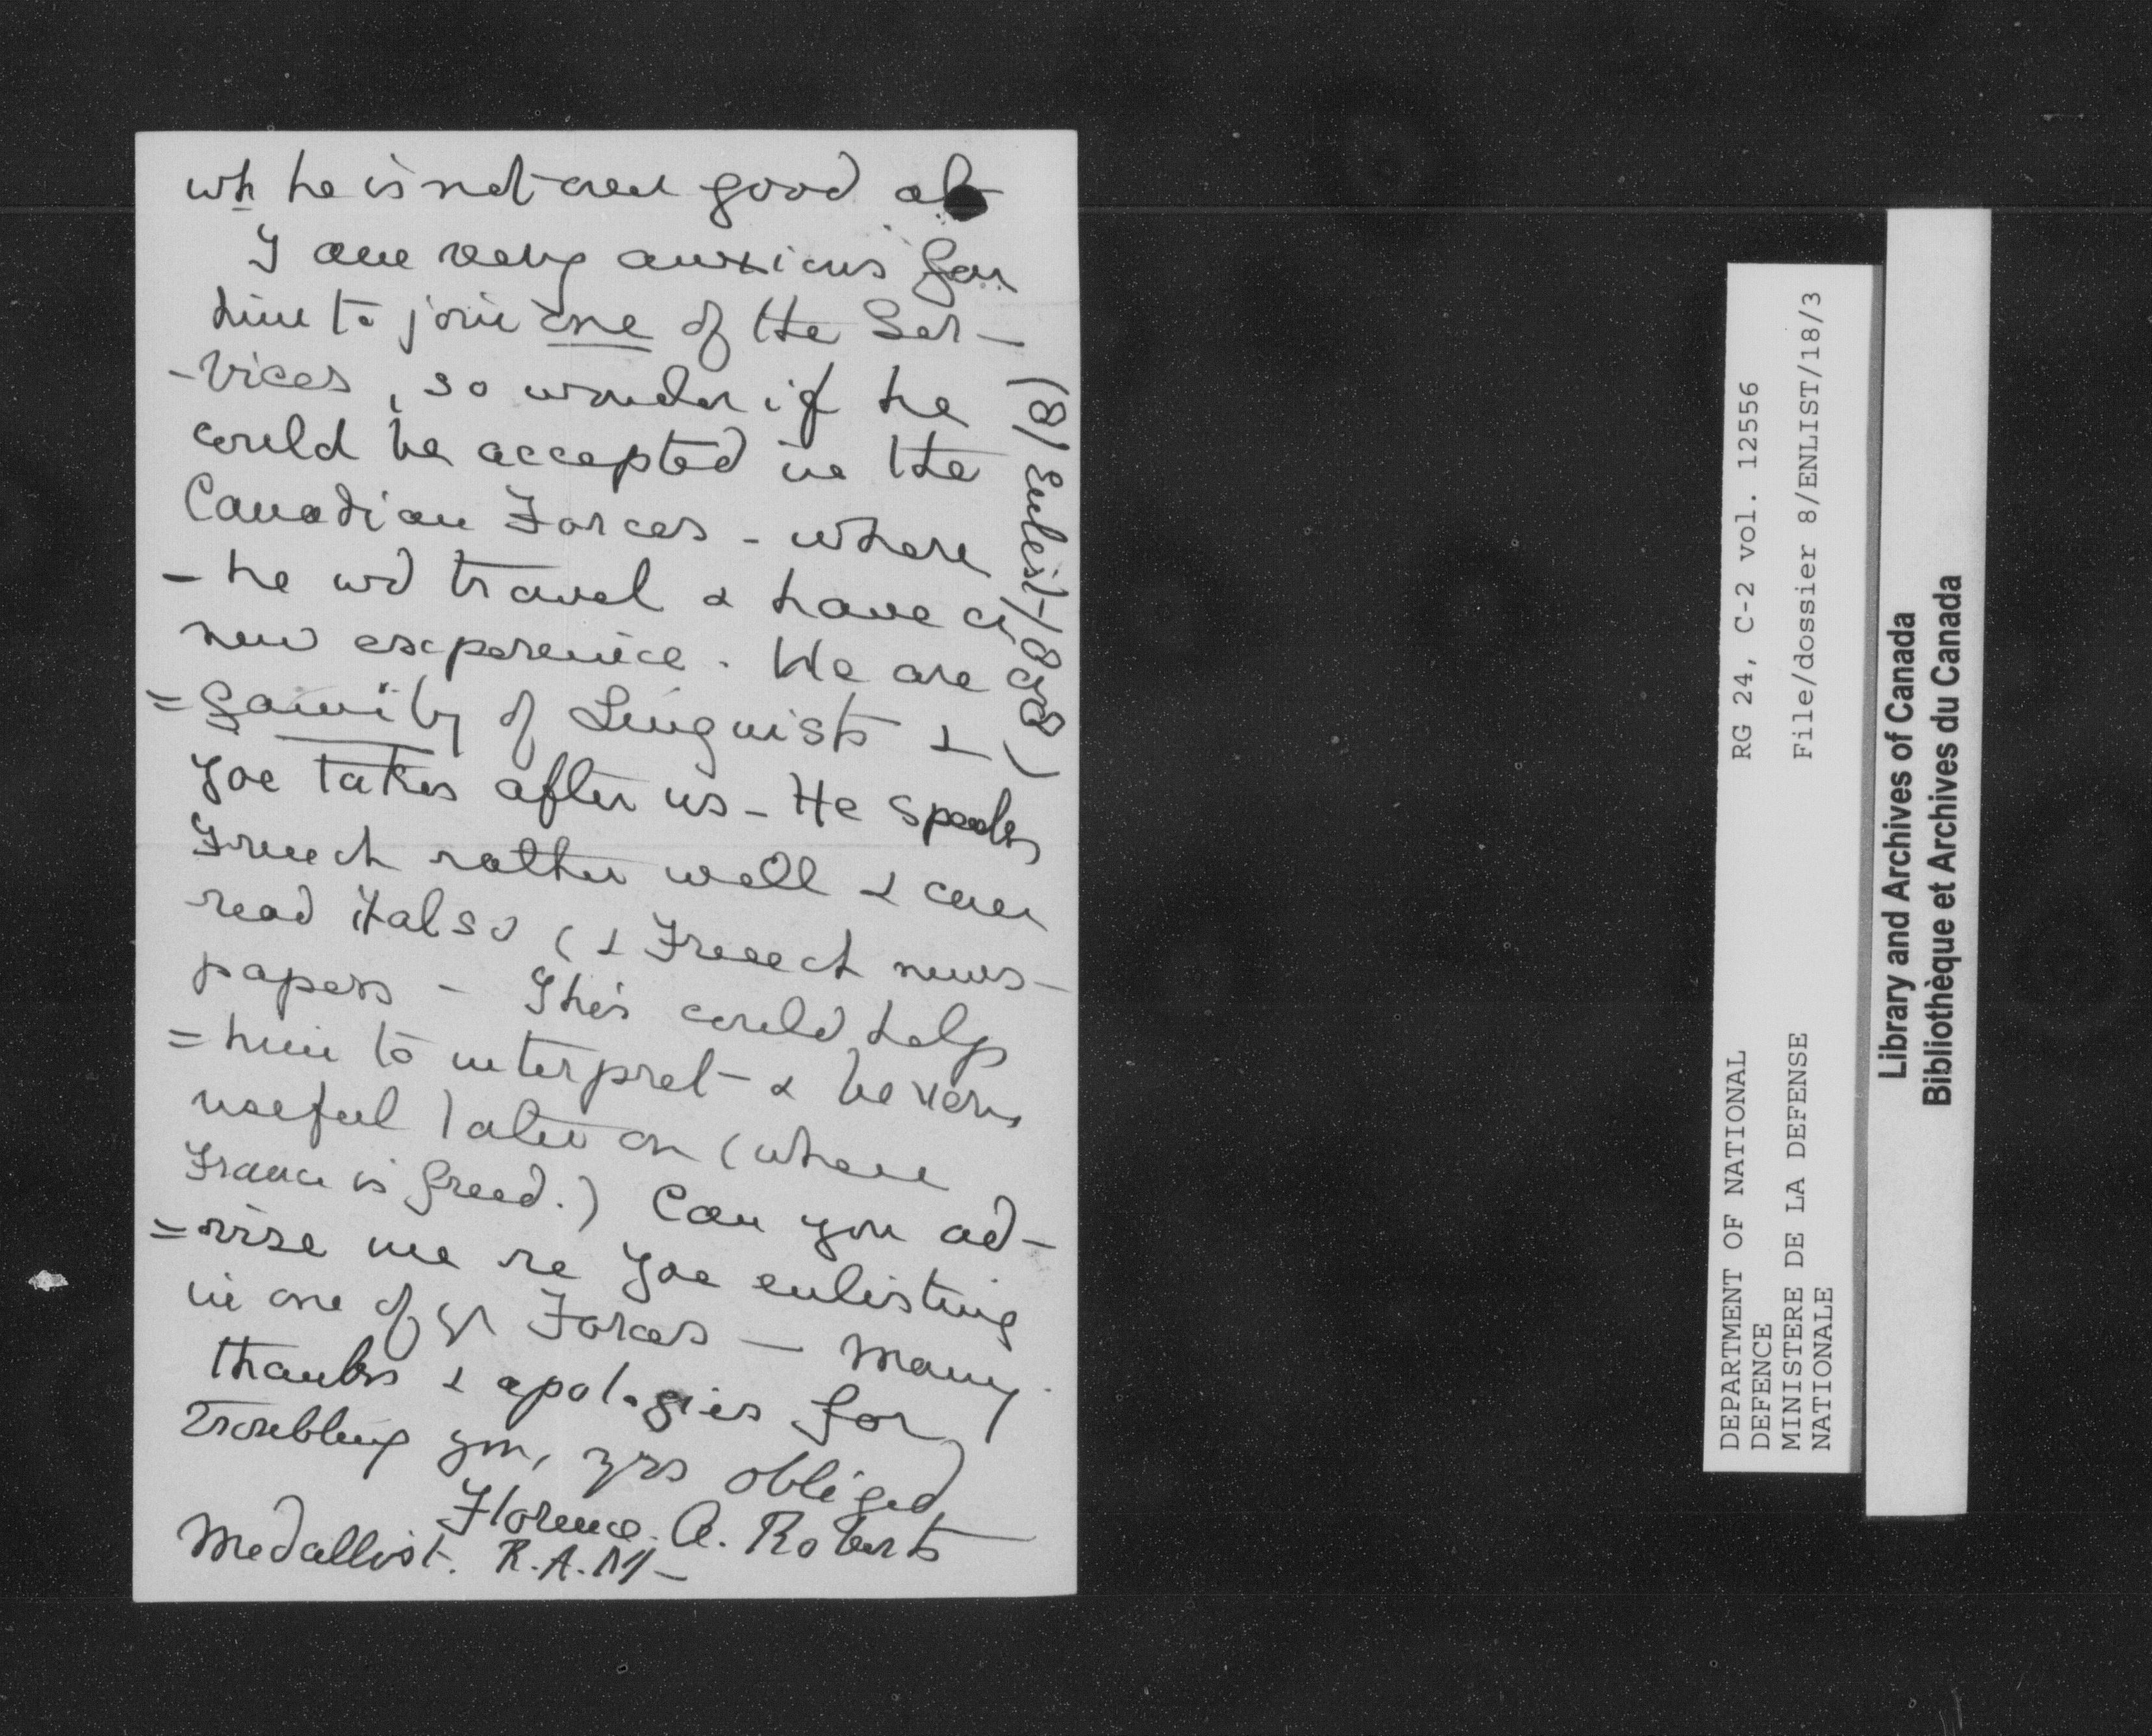 wh he is not over good at
I am very anxious for
him to join one of the Ser-
-vices, so wonder if he
could be accepted in the
Canadian Forces - where
- he wd travel & have a
new experience. We are a
= family of Linguists &
Joe takes after us - He speaks
French rather well & can
read it also (& French news-
papers - This could help
= him to interpret - & be very
useful later on (when
France is freed.) Can you ad-
= vise me re Joe enlisting
in one of yr Forces — Many
thanks & apologies for
troubling you, yrs obliged
Florence. A. Roberts
Medallist. R.A.M -
(8/Enlist/
RG 24, C-2 vol. 12556
File/dossier 8/ENLIST/18/3
DEPARTMENT OF NATIONAL
DEFENCE
MINISTERE DE LA DEFENSE
NATIONALE
Library and Archives of Canada
Bibliothèque et Archives du Canada